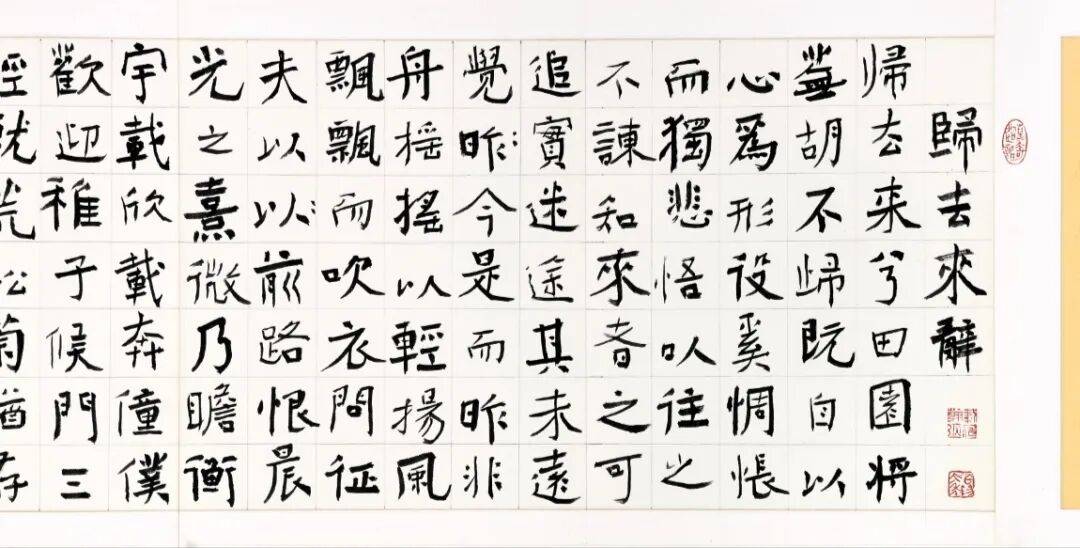 歸去來辭
帰去来兮田園将
蕪胡不歸既自以
心爲形役奚惆悵
而獨悲悟以往之
不諫知來者之可
追實迷途其未遠
覺昨今是而昨非
舟揺搖以輕揚風
飄飄而吹衣問征
夫以以前路恨晨
光之熹微乃瞻衡
宇載欣載奔僮僕
歡迎稚子候門三
徑就荒松菊猶存